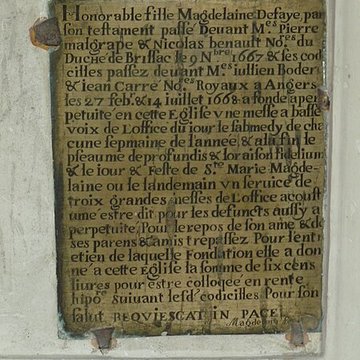 Honorable fille Magdelaine Defaye, par
son testament passé Deuant Mes Pierre
malgrape & Nicolas benault Nores du
Duché de Brissac le 9 Nbre 1667 & ses cod
cilles passez deuant Mes iullien Boder
& iean Carré Nores Royaux a Angers
les 27 feb. & 14 iuillet 1668 a fondé aper
petuité en cette Eglise vne messe a basse
voix de Loffice du iour le sabmedy de cha
cune sepmaine de lannée & a la fin le
pseaume de profundis & loraison fidelium
& le iour & Feste de Ste Marie Magde-
laine ou le landemain vn seruice de
troix grandes messes de Loffice acoust
umé estre dit pour les defuncts aussy a
perpetuité, Pour le repos de son ame & de
ses parens & amis trepassez Pour lentr
etien de laquelle Fondation elle a don
né a cette Eglise la somme de six cens
liures pour estre colloquée en rente
hipore Suiuant lesd. codicilles Pour son
salut REQVIESCAT IN PACE
Magdelaine